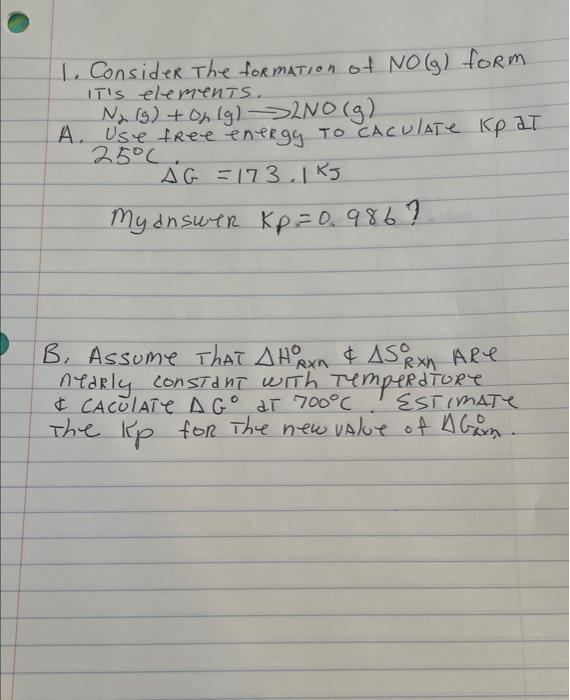 1. Consider The formation of NO(g) form
IT'S elements.
N₂(g) + O₂(g) → 2NO(g)
A. Use free energy TO CACULATE Kp aT
25°C.
ΔG = 173.1 KJ
My answer Kp = 0.986?
B. Assume ThAT ΔH°Rxn & ΔS°Rxn Are
nearly constant with Temperature
& CACULATE ΔG° aT 700°C. ESTIMATE
The Kp for The new value of ΔG°rxn.